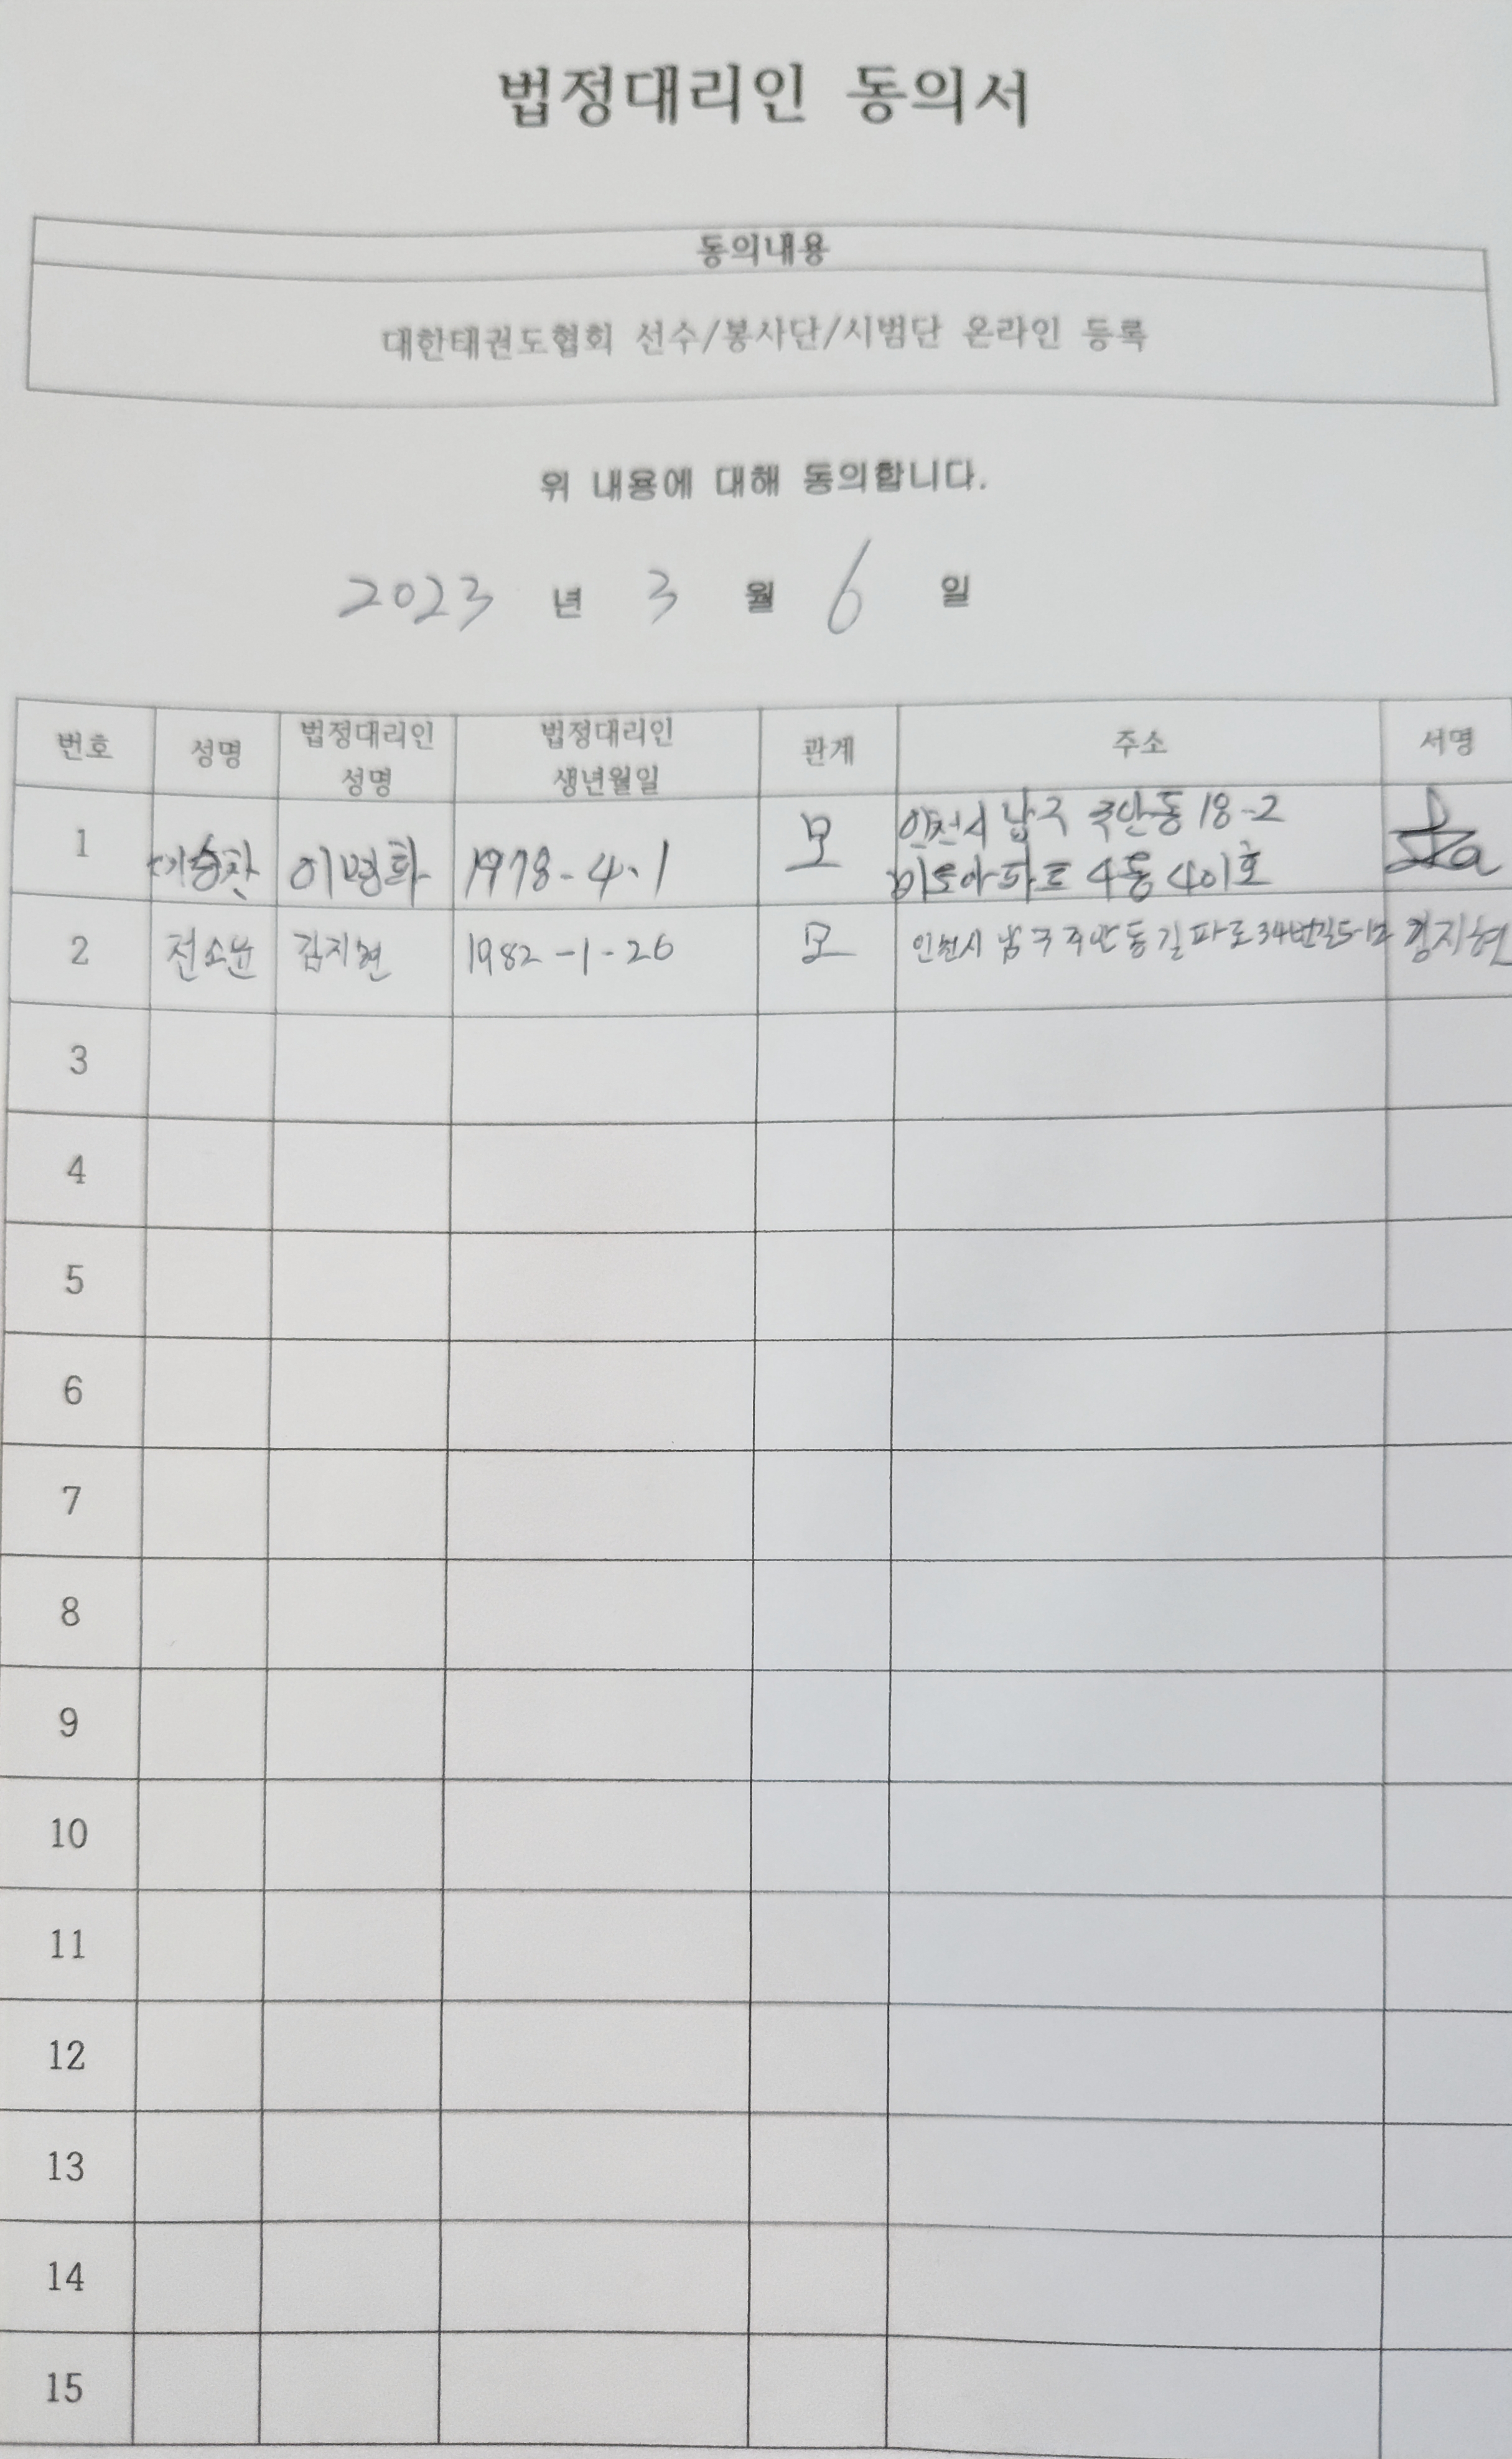 법정대리인 동의서
동의내용
대한태권도협회 선수/봉사단/시범단 온라인 등록
위 내용에 대해 동의합니다.
2023 년 3 월 6 일
번호 성명 법정대리인 성명 법정대리인 생년월일 관계 주소 서명
1 1978-4.1 모 인천시 남구 주안동 18-2
아파트 4동 401호
2 전소윤 김지현 1982-1-26 모 인천시 남구 주안동 길파로34번길 김지현
3
4
5
6
7
8
9
10
11
12
13
14
15